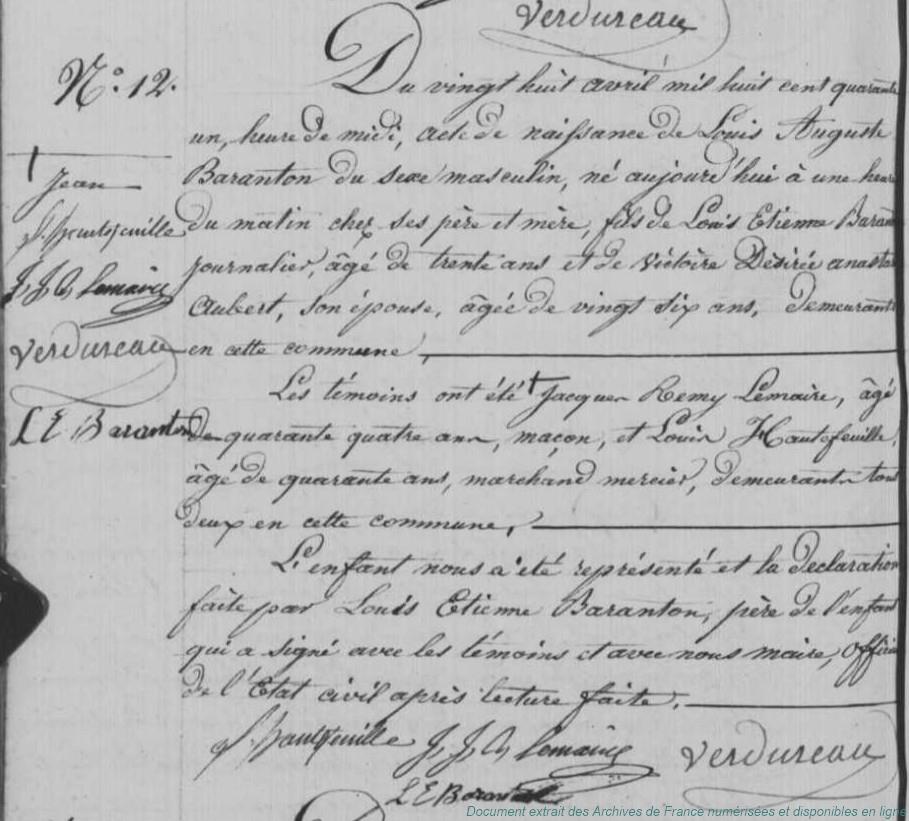 Verdureau
N.° 12.
Du vingt huit avril mil huit cent quarante
un, heure de midi, acte de naissance de Louis Auguste
Baranton du sexe masculin, né aujourd'hui à une heure
du matin chez ses père et mère, fils de Louis Etienne Baran
journalier, âgé de trente ans et de Victoire Désirée anasta
Aubert, son épouse, âgée de vingt six ans, demeurant
en cette commune,
+
Jean
Hautefeuille
J. J. Lemaire
Verdureau
L E Baranton
Les témoins ont été + Jacques Remy Lemaire, âgé
de quarante quatre ans, maçon, et Louis Hautefeuille,
âgé de quarante ans, marchand mercier, demeurants tous
deux en cette commune,
L'enfant nous a été représenté et la déclaration
faite par Louis Etienne Baranton, père de l'enfant
qui a signé avec les témoins et avec nous maire, officie
de l'Etat civil après lecture faite.
Hautefeuille J. J. Lemaire Verdureau
L E Baranton
Document extrait des Archives de France numérisées et disponibles en ligne